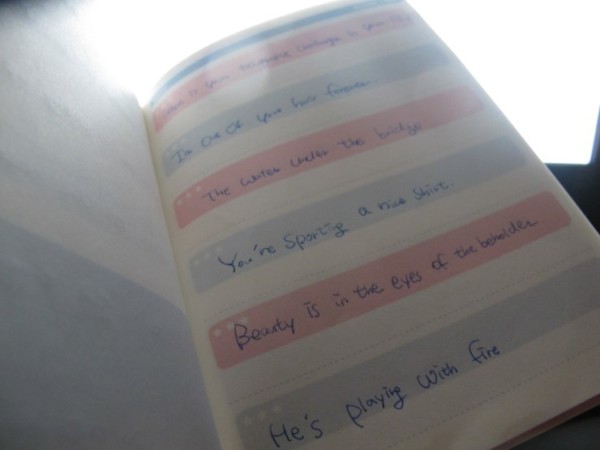 is your
of your hair forever
The water under the bridge
You're sporting a nice shirt.
Beauty is in the eyes of the beholder
He's playing with fire